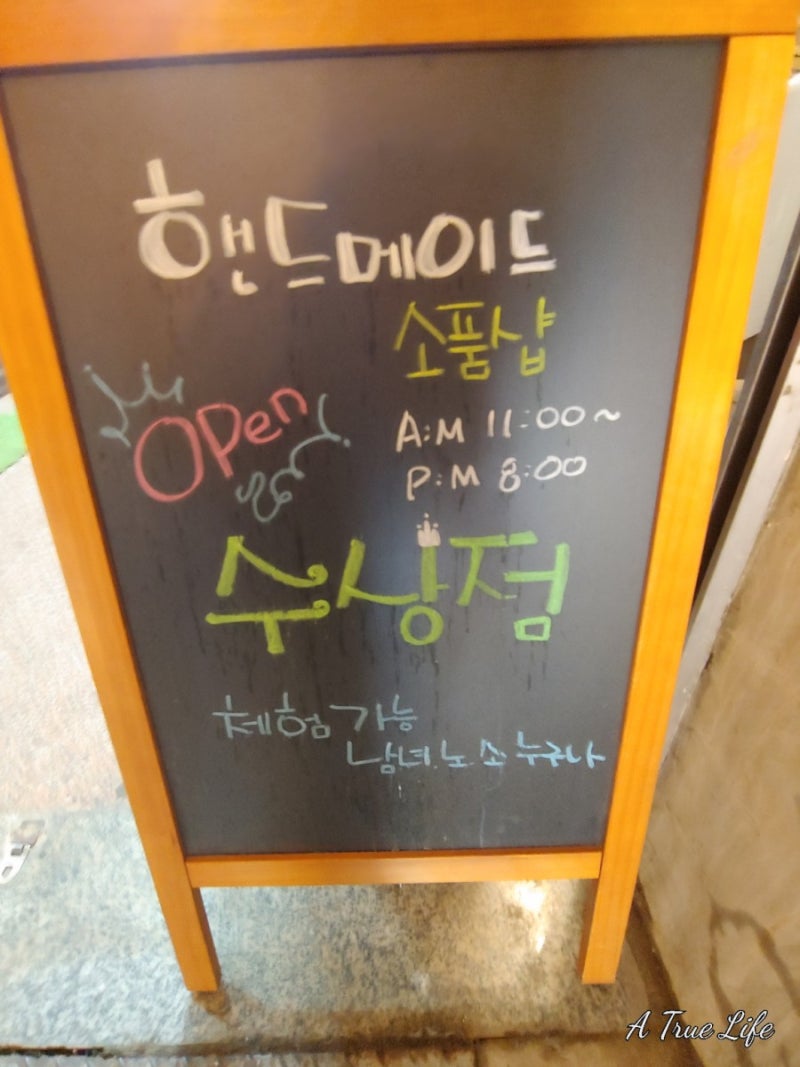 핸드메이드
소품샵
Open
A:M 11:00~
P:M 8:00
수상점
체험 가능
남녀.노소 누구나
A True Life